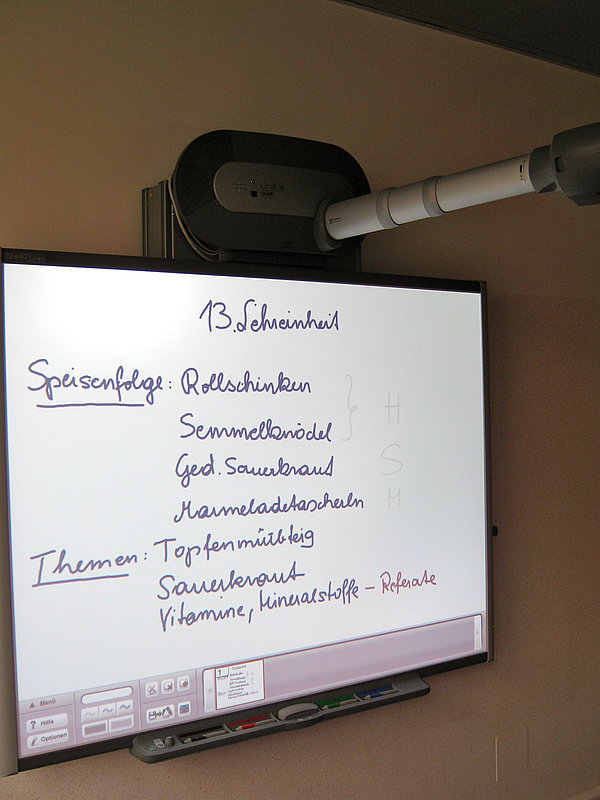 13. Lehreinheit
Speisenfolge: Rollschinken
Semmelknödel
H
Ged. Sauerkraut
S
Marmeladetascherln
M
Themen: Topfenmürbteig
Sauerkraut
Vitamine, Mineralstoffe – Referate
Menü
Hilfe
Optionen
1